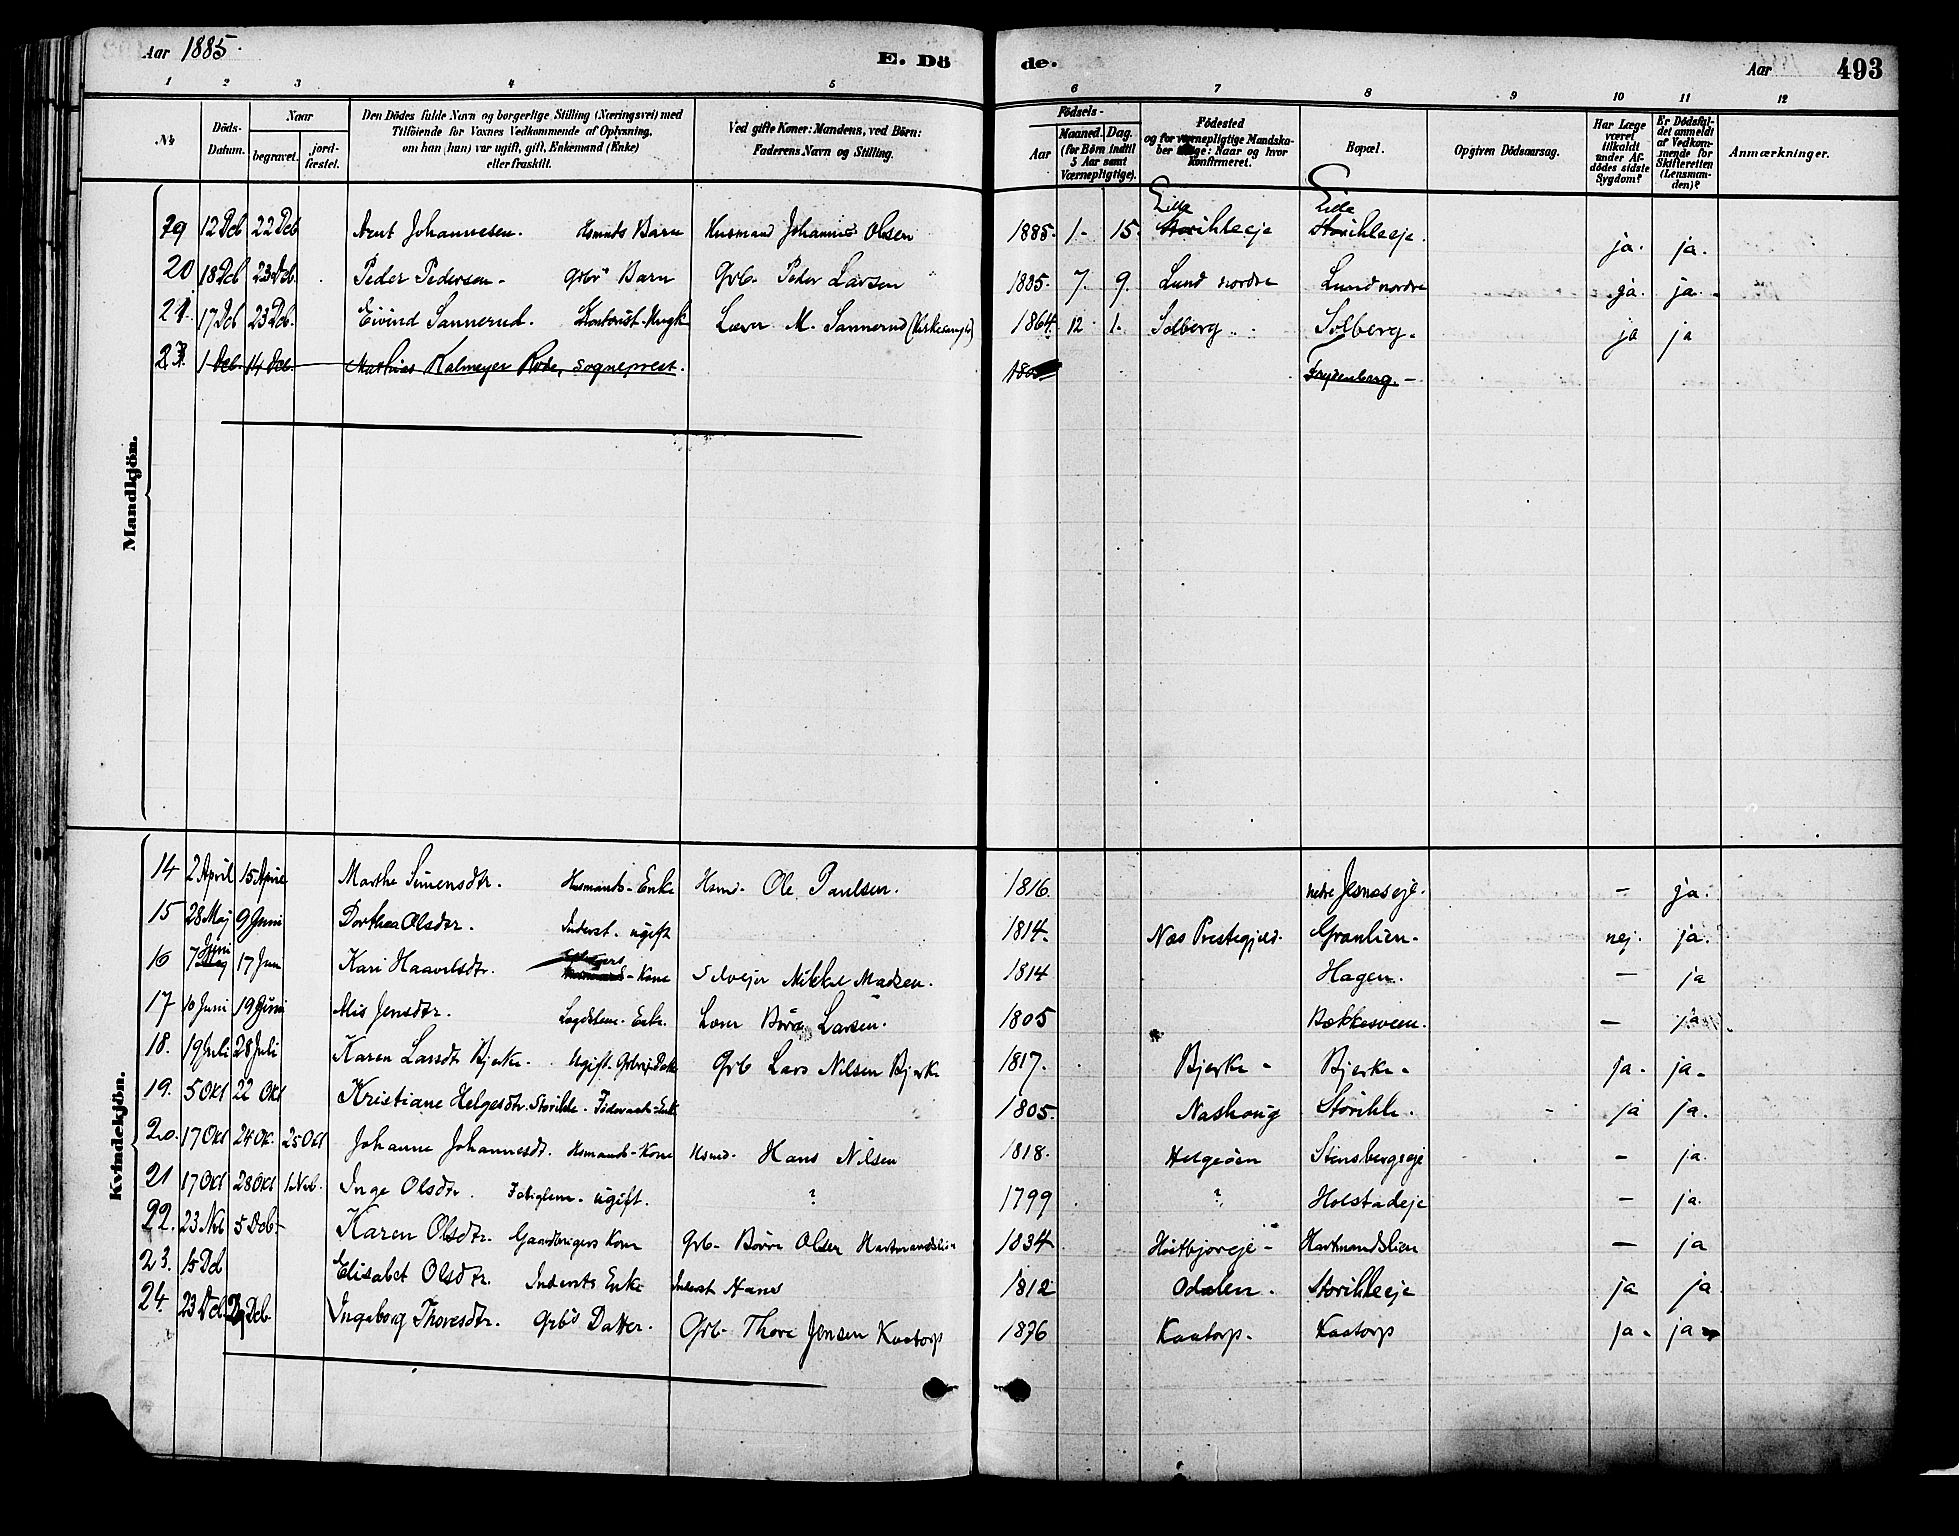 Aar 1885.
E. Dö
de.
Aar
493
1 2 3 4 5 6 7 8 9 10 11 12
No
Döds-Datum.
Naar
begravet.
jord-fæstet.
Den Dödes fulde Navn og borgerlige Stilling (Næringsvei) med
Tilföiende for Voxnes Vedkommende af Oplysning,
om han (hun) var ugift, gift, Enkemand (Enke)
eller fraskilt.
Ved gifte Koner: Mandens, ved Börn:
Faderens Navn og Stilling.
Födsels-
Aar
Maaned. Dag.
(for Börn indtil
5 Aar samt
Værnepligtige).
Födested
og for værnepligtige Mandska-
ber : Naar og hvor
Konfirmeret.
Bopæl.
Opgiven Dödsaarsag.
Har Læge
været
tilkaldt
under Af-
dödes sidste
Sygdom?
Er Dödsfal-
det anmeldt
af Vedkom-
mende for
Skifteretten
(Lensman-
den)?
Anmærkninger.
Mandkjön.
12 Deb 22 Deb Arnt Johannesen. Hsmnds Barn Husmand Johannes Olsen 1885. 1- 15. Lille ihleeje Lille ihleeje. ja. ja.
20 18 Deb 23 Deb. Peder Pedersen - Grbr Barn Grb. Peder Larsen 1885. 7. 9. Lund nordre Lund nordre ja. ja.
21. 17 Deb 23 Deb. Eivind Sannerud. Lærer M. Sannerud 1864. 12 1. Solberg Solberg. ja ja
1 Deb. 14 Deb. Mathias Kalmeyer Rode, sogneprest. Frydenberg. -
Kvindekjön.
14 2 April 15 April Marthe Simensdtr. Husmands-Enke Hsmd. Ole Paulsen. 1816. nedre Jesnæseje. - ja.
15 28 Maj 9 Juni Dorthea Olsdtr. Inderst. ugift 1814. Næs Prestegjeld. Granlien. nej. ja.
16 7 Juni 17 Juni Kari Haavelsdtr. - Kone Selvejer Mikkel Madsen. 1814 Hagen. - ja
17 10 Juni 19 Juni Alis Jensdtr. Lægdslem - Enke. Børre Larsen. 1805 Bækkesveen. - ja
18. 19 Juli 28 Juli Karen Larsdtr Bjerke. Ugift. Grb Lars Nilsen Bjerke 1817. Bjerke - Bjerke - ja. ja.
19. 5 Okt 22 Okt Kristiane Helgesdtr. Storihle. Føderaads-Enke 1805. Nashoug Storihle. ja ja.
20. 17 Okt 24 Ok. 25 Okt Johanne Johannesdtr. Hsmands-Kone Hsmd. Hans Nilsen 1818. Helgeøen Stensbergseje - ja.
21 17 Okt 28 Okt 1 Nvb. Inge Olsdtr. Fattiglem. ugift. ? 1799 ? Holstadeje - ja.
22. 23 Nvb 5 Deb- Karen Olsdtr. Gaardbrugers Kone Grb. Børre Olsen Hartmandslien 1834 Høitbjoreje - Hartmandslien - ja
23. 15 Deb Elisabet Olsdtr. Inderst Enke Inderst Hans 1812 Odalen. Storihleeje ja ja
24. 23 Deb 29 Deb Ingeborg Thoresdtr. Grbs Datter. Grb- Thore Jensen Kaatorp 1876 Kaatorp. Kaatorp ja. ja